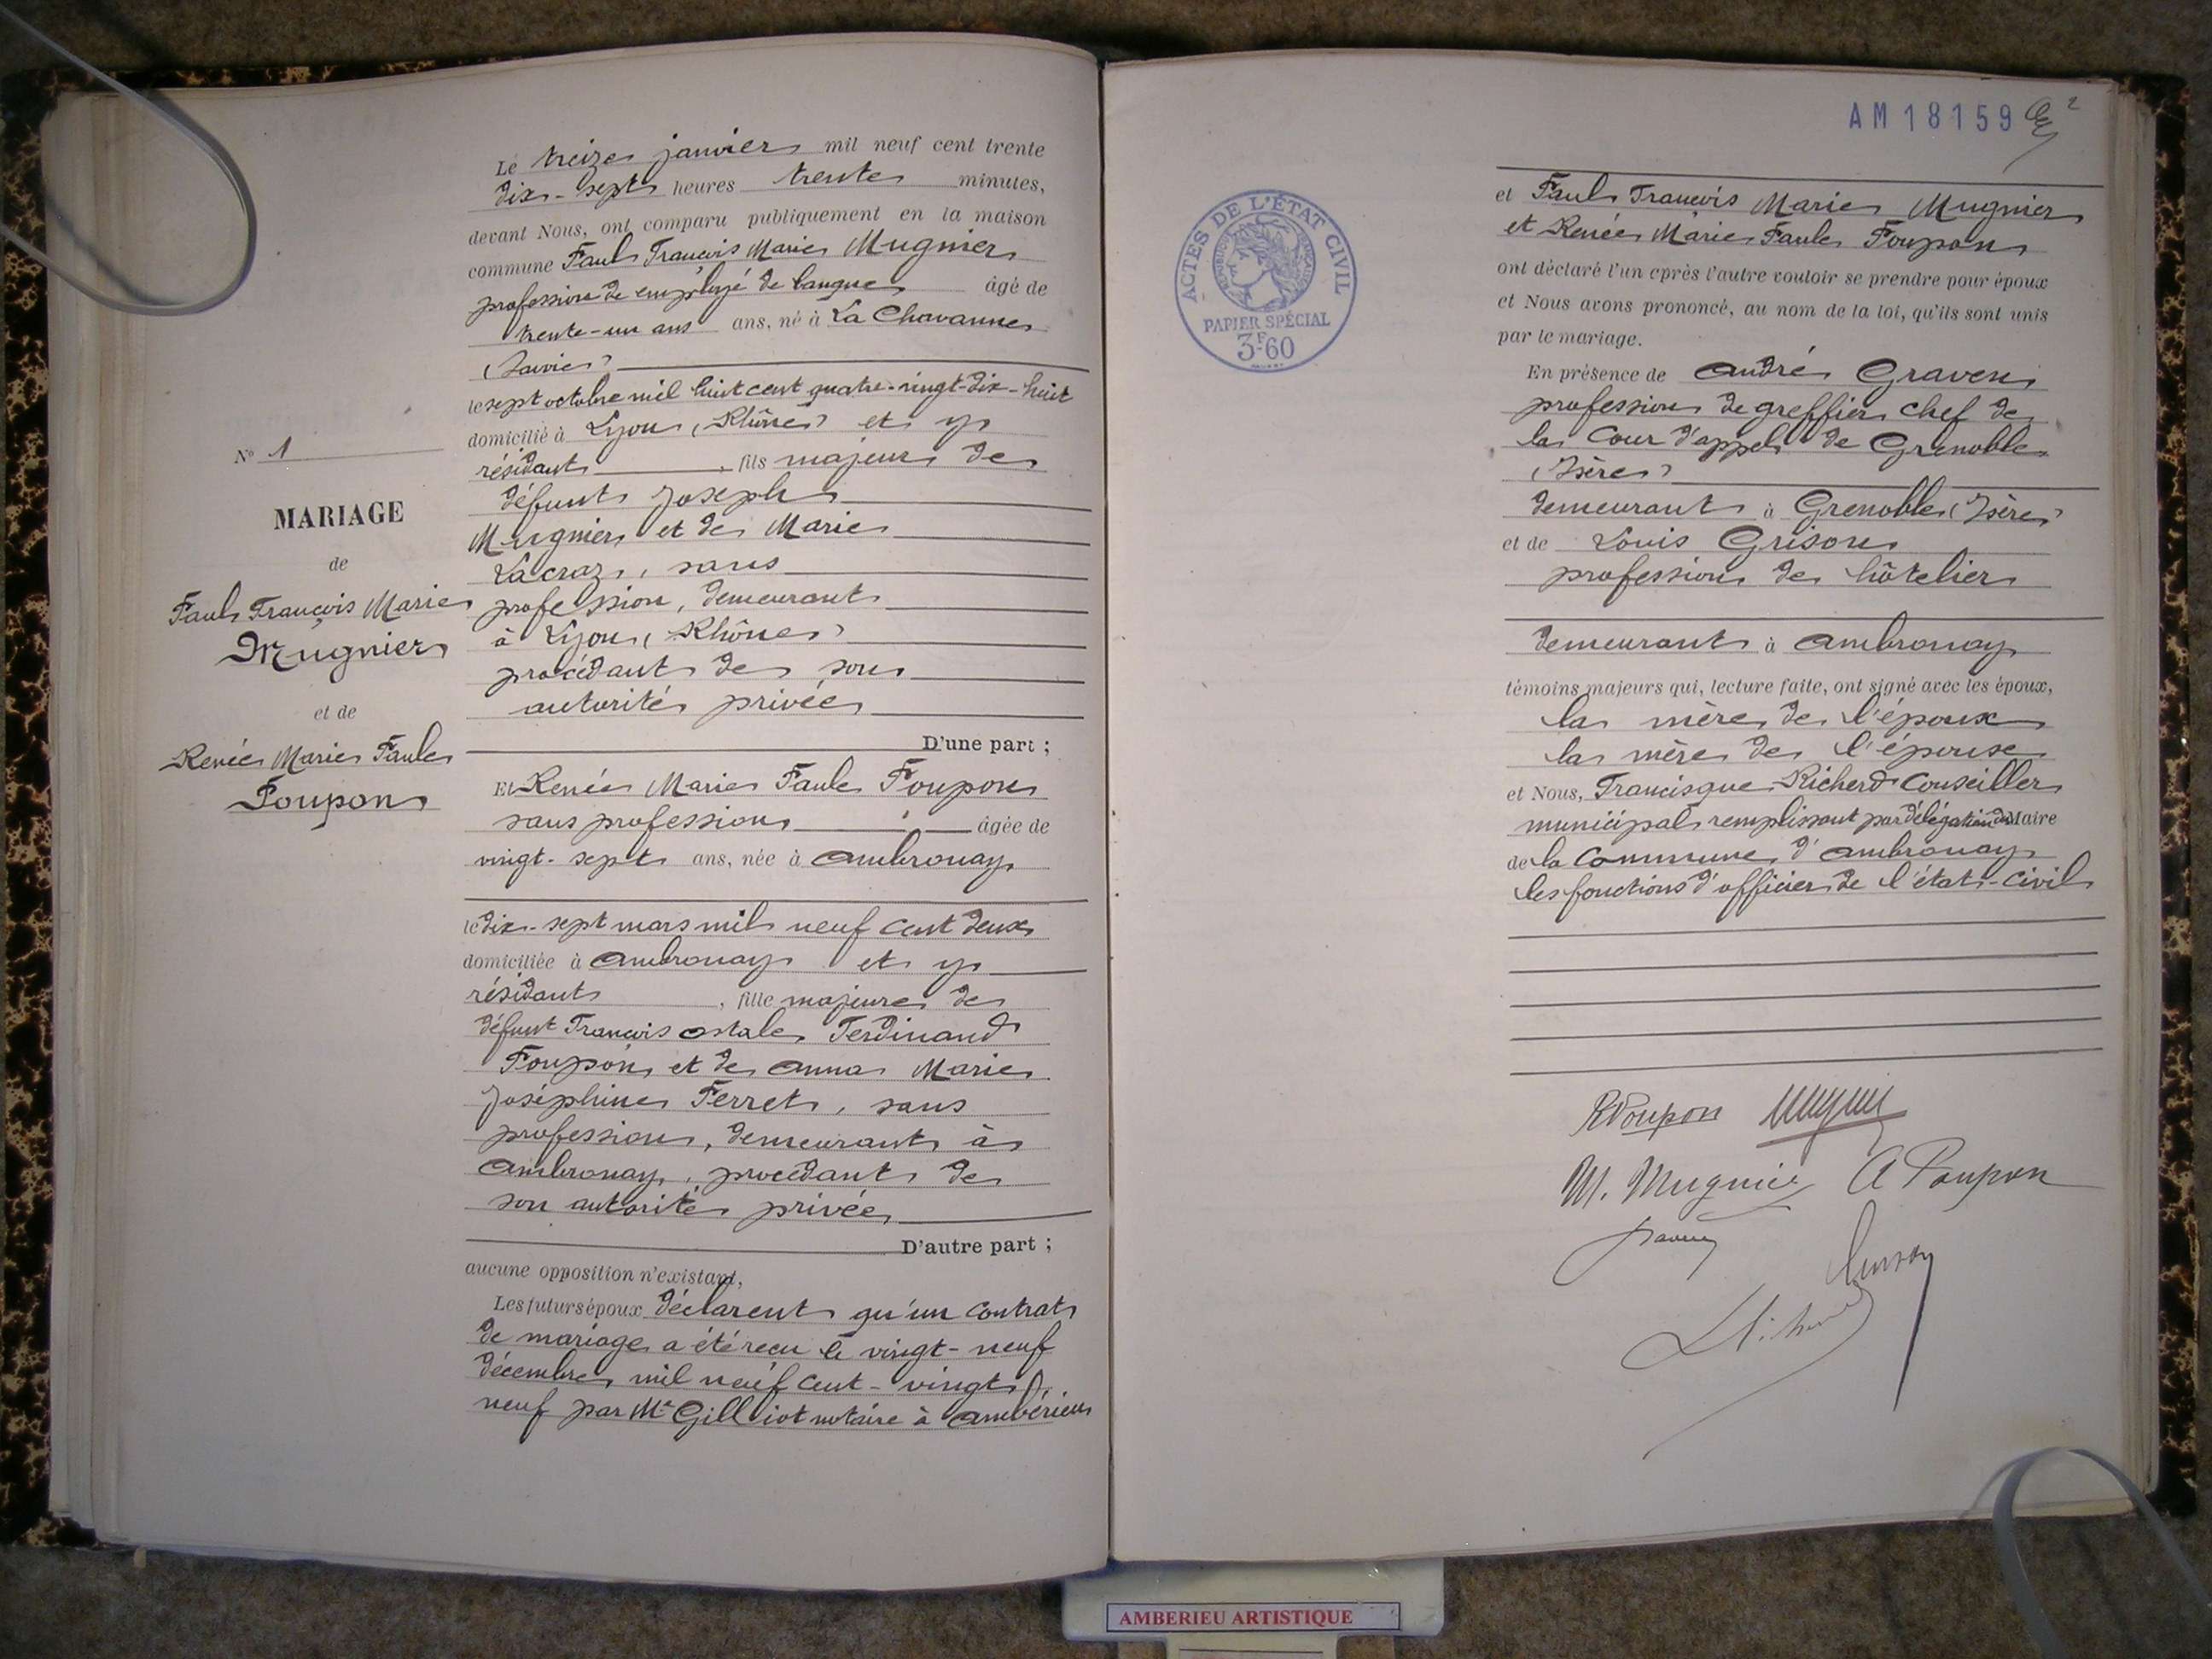 Le treize janvier mil neuf cent trente
dix-sept heures trente minutes,
devant Nous, ont comparu publiquement en la maison
commune Paul François Marie Mugnier
profession de employé de banque âgé de
trente-un ans ans, né à La Chavanne
(Savoie)
le sept octobre mil huit cent quatre-vingt-dix-huit
domicilié à Lyon (Rhône) et y
résidant, fils majeur de
défunt Joseph
Mugnier et de Marie
Lacraz, sans
profession, demeurant
à Lyon (Rhône)
procédant de son
autorité privée
D'une part ;
Et Renée Marie Paule Poupon
sans profession âgée de
vingt-sept ans, née à Ambronay
le dix-sept mars mil neuf cent deux
domiciliée à Ambronay et y
résidant, fille majeure de
défunt François Ferdinand
Poupon et de Anna Marie
Joséphine Ferret, sans
profession, demeurant à
Ambronay, procédant de
son autorité privée
D'autre part ;
aucune opposition n'existant,
Les futurs époux déclarent qu'un contrat
de mariage a été reçu le vingt-neuf
décembre mil neuf cent-vingt
neuf par Me Gilliot notaire à Ambérieu
N° 1
MARIAGE
de
Paul François Marie
Mugnier
et de
Renée Marie Paule
Poupon
AM18159
2
ACTES DE L'ÉTAT CIVIL
RÉPUBLIQUE FRANÇAISE
PAPIER SPÉCIAL
3F60
et Paul François Marie Mugnier
et Renée Marie Paule Poupon
ont déclaré l'un après l'autre vouloir se prendre pour époux
et Nous avons prononcé, au nom de la loi, qu'ils sont unis
par le mariage.
En présence de André Graven
profession de greffier chef de
la Cour d'appel de Grenoble
(Isère)
demeurant à Grenoble (Isère)
et de Louis Grison
profession de hôtelier
demeurant à Ambronay
témoins majeurs qui, lecture faite, ont signé avec les époux,
la mère de l'époux
la mère de l'épouse
et Nous, Francisque Richerd Conseiller
municipal remplissant par délégation du Maire
de la Commune d'Ambronay
les fonctions d'officier de l'état-civil
RPoupon Mugnier
M. Mugnier A Poupon
AMBERIEU ARTISTIQUE